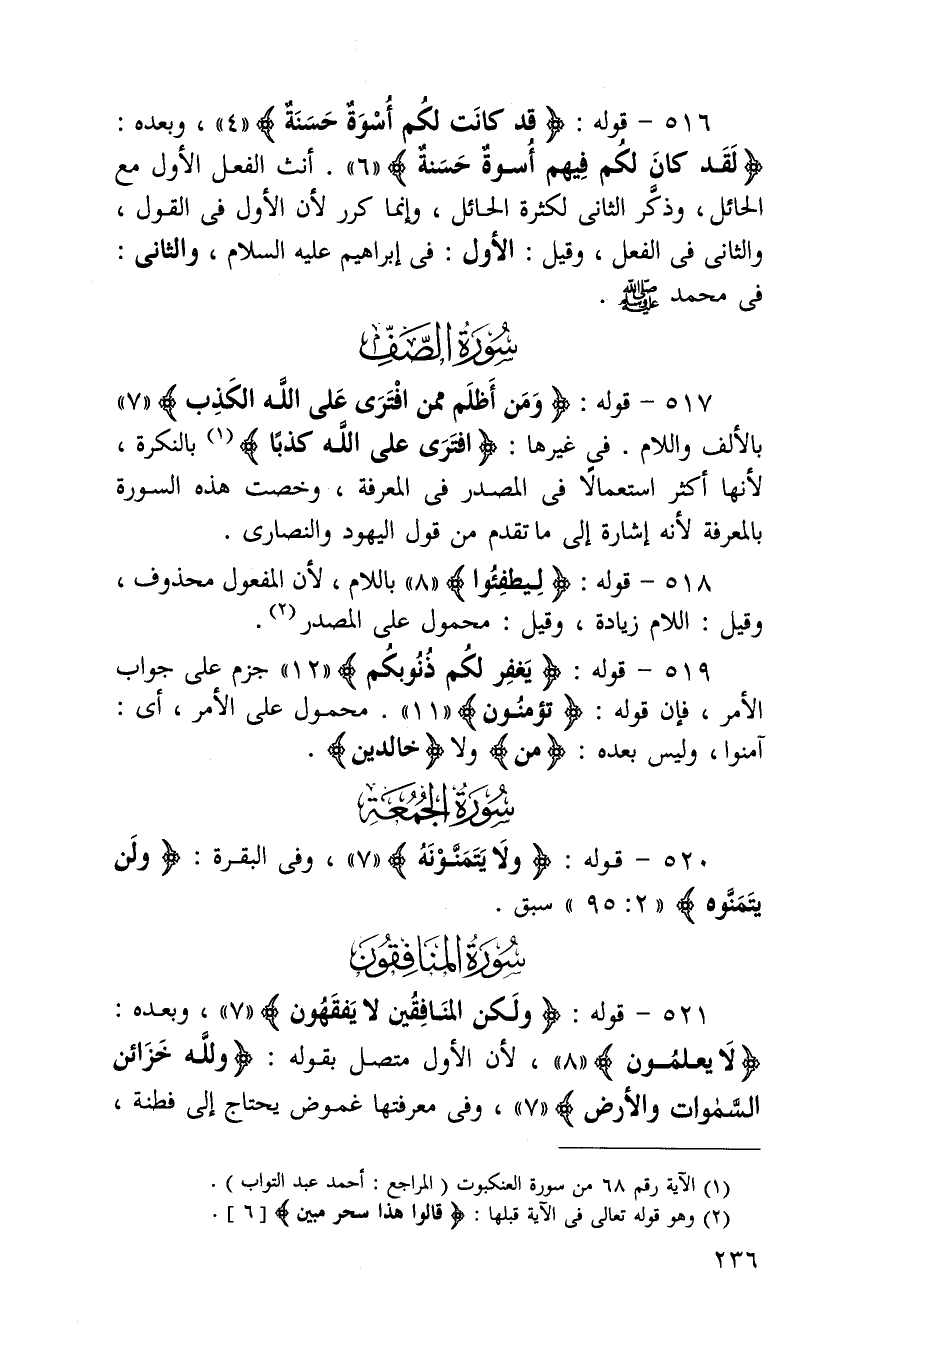 ٥١٦ – قوله : ﴿ قد كانَت لكُم أُسْوَةٌ حَسَنَةٌ ﴾ «٤» ، وبعده :
﴿ لَقَـد كانَ لكُم فِيهم أُسـوةٌ حَسَنةٌ ﴾ «٦» . أنث الفعل الأول مع
الحائل ، وذكَّر الثانى لكثرة الحـائل ، وإنما كرر لأن الأول فى القـول ،
والثانى فى الفعل ، وقيل : الأول : فى إبراهيم عليه السلام ، والثانى :
فى محمد ﷺ .
سُورَةُ الصَّفِّ
٥١٧ – قوله : ﴿ وَمَن أَظلَم ممن افْتَرَى عَلى اللَّه الكَذِب ﴾ «٧»
بالألف واللام . فى غيرها : ﴿ افتَرَى على اللَّه كذبًا ﴾ (١) بالنكرة ،
لأنها أكثر استعمالًا فى المصدر فى المعرفة ، وخصت هذه السـورة
بالمعرفة لأنه إشارة إلى ما تقدم من قول اليهود والنصارى .
٥١٨ – قوله : ﴿ لـيطفِئُوا ﴾ «٨» باللام ، لأن المفعول محذوف ،
وقيل : اللام زيادة ، وقيل : محمول على المصدر (٢) .
٥١٩ – قوله : ﴿ يَغفِر لكُم ذُنُوبكُم ﴾ «١٢» جزم على جواب
الأمر ، فإن قوله : ﴿ تؤمنُـون ﴾ «١١» . محمـول على الأمر ، أى :
آمنوا ، وليس بعده : ﴿ من ﴾ ولا ﴿ خالدين ﴾ .
سُورَةُ الجُمُعَة
٥٢٠ – قـوله : ﴿ ولَا يَتَمَنَّـوْنَهُ ﴾ «٧» ، وفى البقـرة : ﴿ ولَن
يتَمَنَّوه ﴾ « ٢: ٩٥ » سبق .
سُورَةُ المُنَافِقُونَ
٥٢١ – قوله : ﴿ ولَـكن المنَـافِقُين لا يَفقَهُون ﴾ «٧» ، وبعـده :
﴿ لَا يعـلمُـون ﴾ «٨» ، لأن الأول متصـل بقـوله : ﴿ وللَّه خَزَائن
السَّمٰوات والأرض ﴾ «٧» ، وفى معرفتها غمـوض يحتاج إلى فطنة ،
(١) الآية رقم ٦٨ من سورة العنكبوت ( المراجع : أحمد عبد التواب ) .
(٢) وهو قوله تعالى فى الآية قبلها : ﴿ قالوا هذا سحر مبين ﴾ [ ٦ ] .
٢٣٦